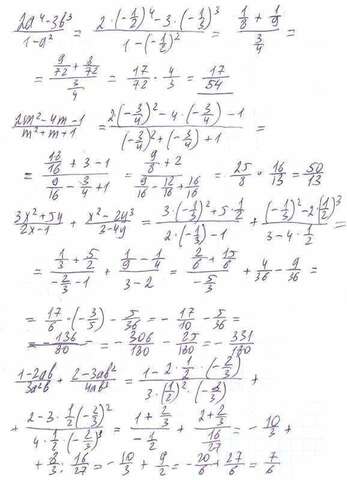 (2a⁴-3b³)/(1-a²) = (2·(-1/2)⁴-3·(-1/3)³)/(1-(-1/2)²) = (1/8+1/9)/(3/4) =
= (9/72+8/72)/(3/4) = 17/72 · 4/3 = 17/54
(2m²-4m-1)/(m²+m+1) = (2(-3/4)²-4·(-3/4)-1)/((-3/4)²+(-3/4)+1) =
= (18/16+3-1)/(9/16-3/4+1) = (9/8+2)/(9/16-12/16+16/16) = 25/8 · 16/13 = 50/13
(3x²+5y)/(2x-1) + (x²-2y³)/(2-4y) = (3·(-1/3)²+5·1/2)/(2·(-1/3)-1) + ((-1/3)²-2·(1/2)³)/(3-4·1/2) =
= (1/3+5/2)/(-2/3-1) + (1/9-1/4)/(3-2) = (2/6+15/6)/(-5/3) + 4/36-9/36 =
= 17/6·(-3/5)-5/36 = -17/10-5/36
= -306/180-25/180 = -331/180
(1-2ab)/(3a²b) + (2-3ab²)/(4ab³) = (1-2·1/2·(-2/3))/(3·(1/2)²·(-2/3)) +
+ (2-3·1/2(-2/3)²)/(4·1/2·(-2/3)³) = (1+2/3)/(-1/2) + (2+2/3)/(16/27) = -10/3 +
+ 8/3 · 16/27 = -10/3+9/2 = -20/6+27/6 = 7/6